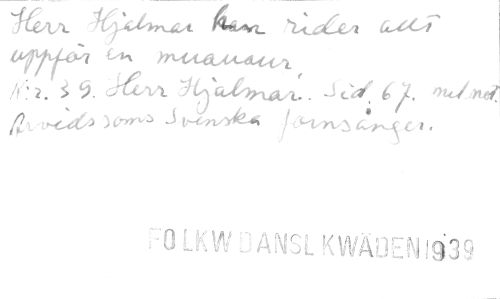 Herr Hjalmar han rider allt
uppför en
Nr. 39. Herr Hjalmar. Sid. 67. mel. not.
Arvidssons Svenska fornsånger.
FOLKW DANSL KWÄDEN 1939